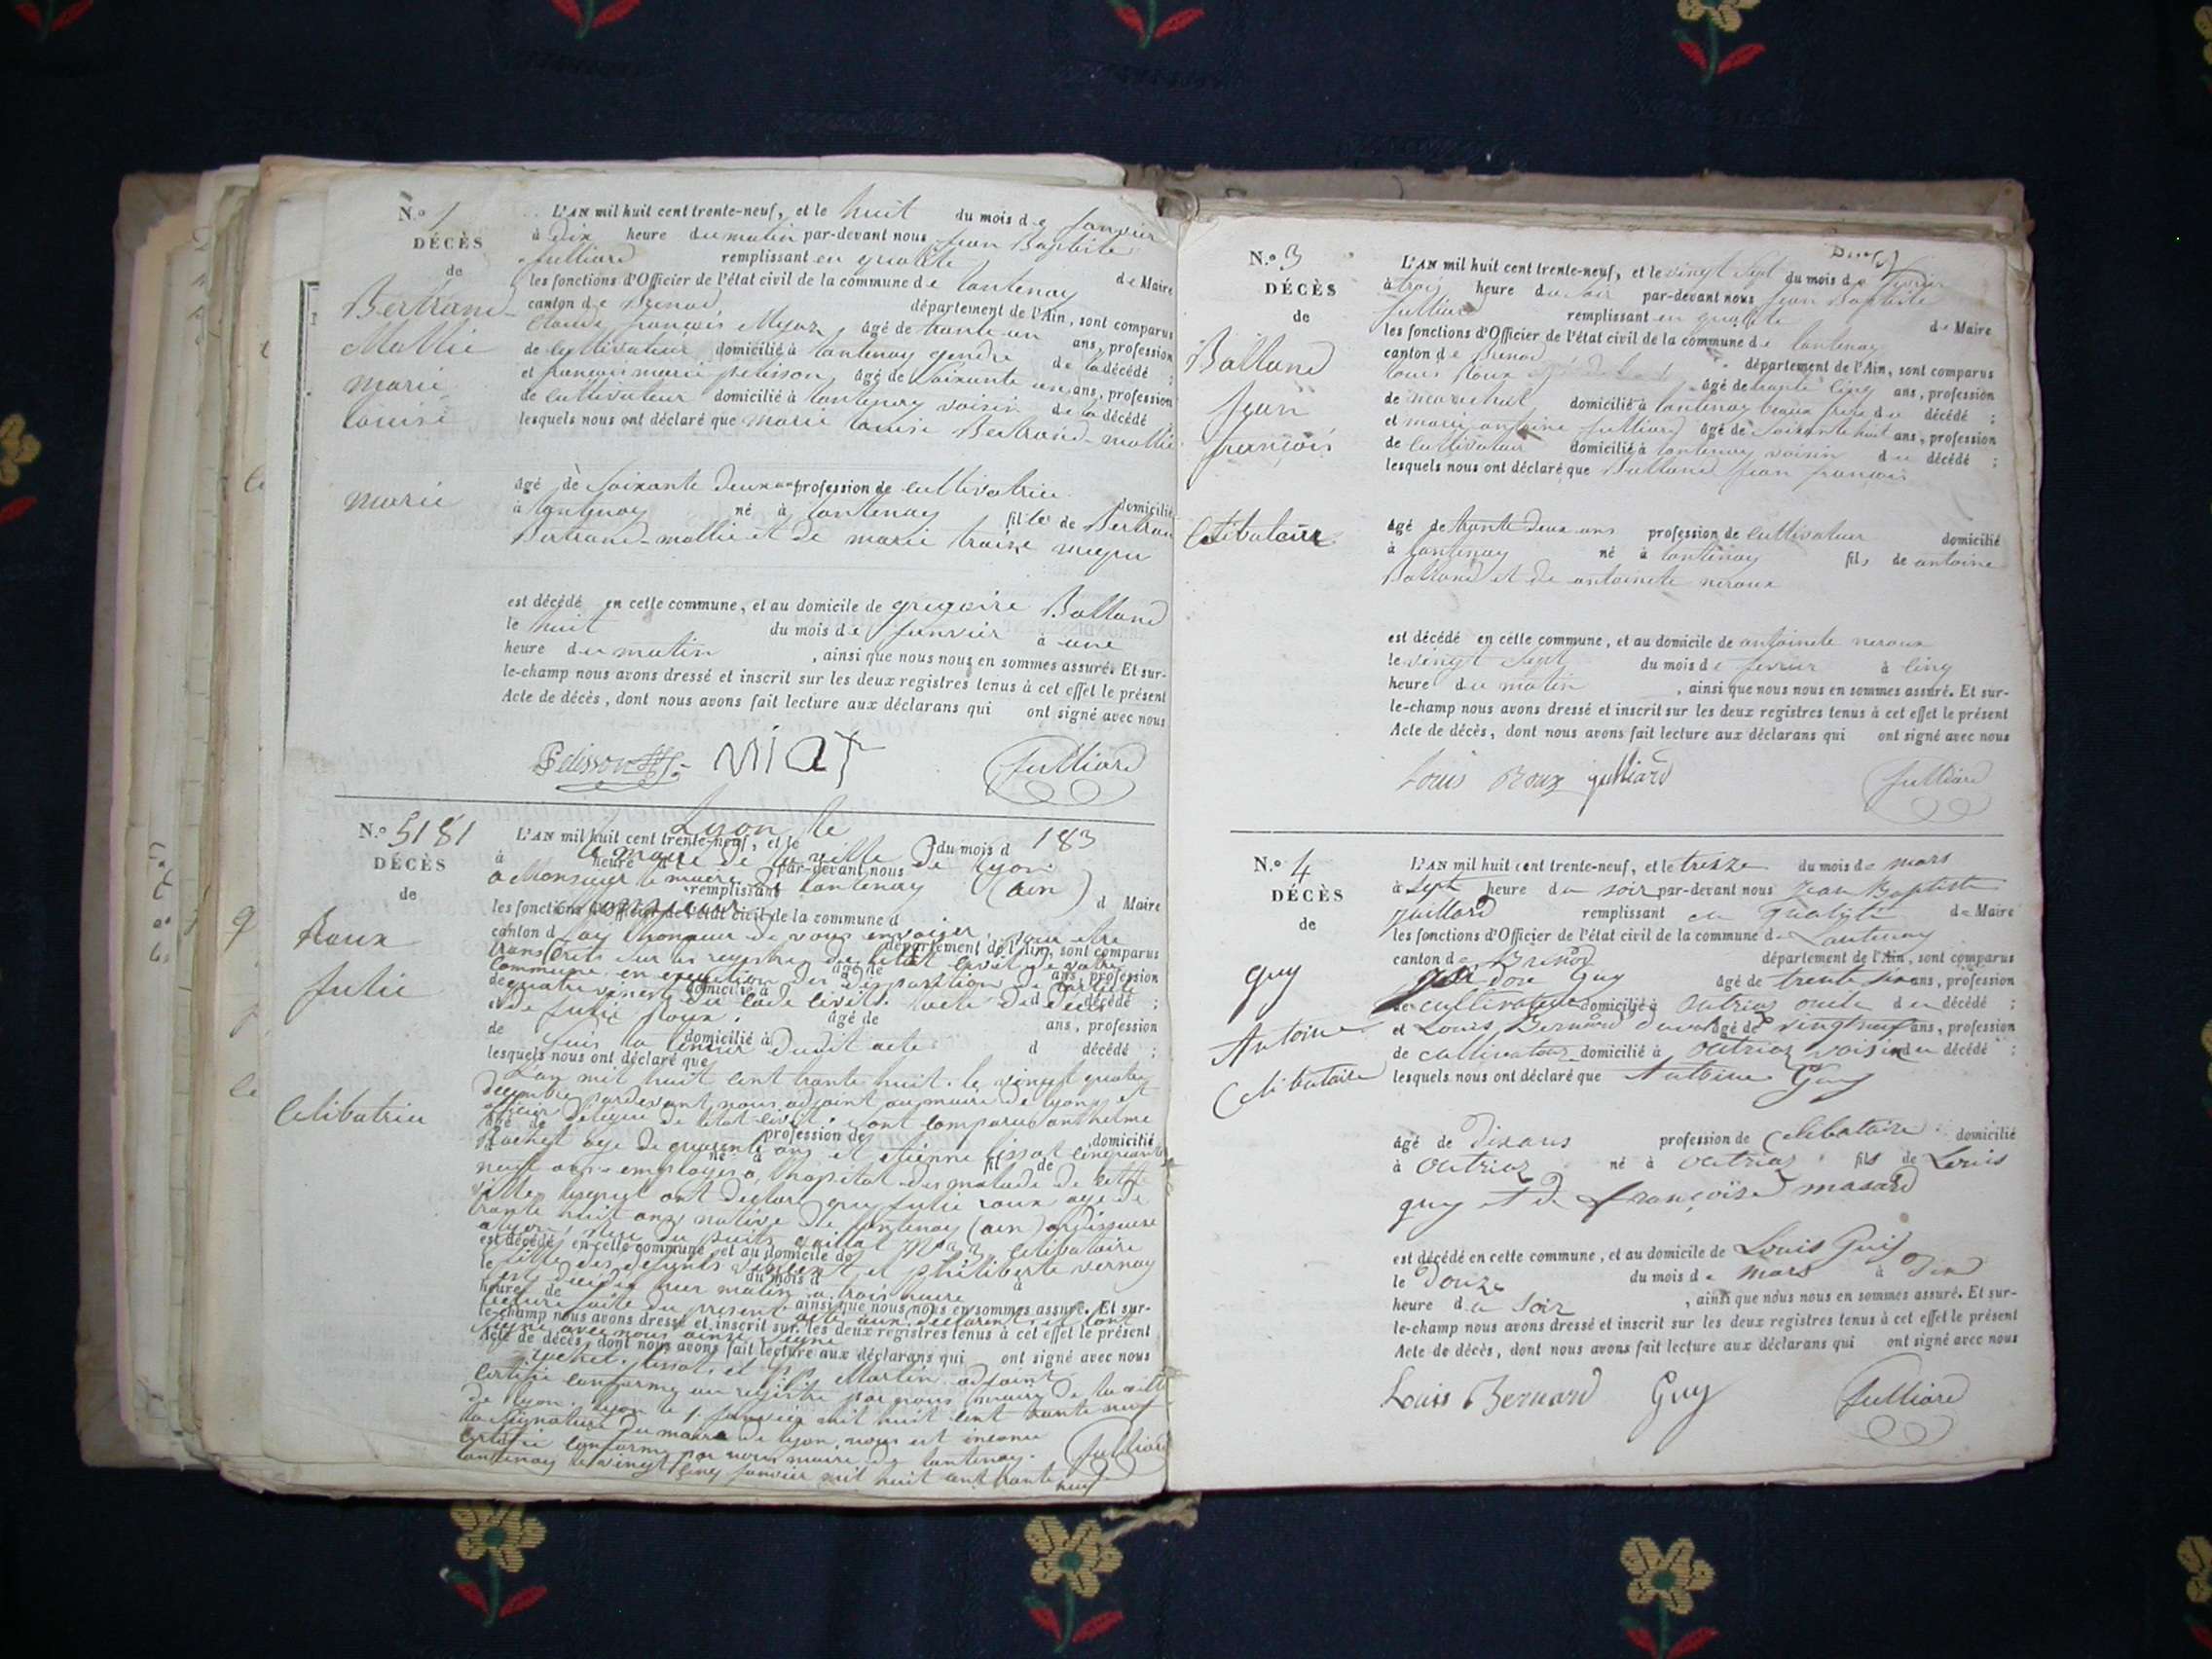 N.o 1
DÉCÈS
de
Bertrand-
Mollie
marie
louise
marie
L'AN mil huit cent trente-neuf, et le huit du mois de janvier
à dix heure du matin par-devant nous jean Baptiste
julliard remplissant en qualité de Maire
les fonctions d'Officier de l'état civil de la commune de lantenay
canton de Brenod département de l'Ain, sont comparus
claude françois âgé de trante un ans, profession
de cultivateur domicilié à lantenay gendre de la décédé ;
et françois marie pelisson âgé de soixante un ans, profession
de cultivateur domicilié à lantenay voisin de la décédé
lesquels nous ont déclaré que marie louise Bertrand-mollie
âgé de soixante deux ans profession de cultivatrice domicilié
à lantenay né à lantenay fille de
Bertrand-mollie et de marie
est décédé en cette commune, et au domicile de gregoire Balland
le huit du mois de janvier à une
heure du matin , ainsi que nous nous en sommes assuré. Et sur-
le-champ nous avons dressé et inscrit sur les deux registres tenus à cet effet le présent
Acte de décès, dont nous avons fait lecture aux déclarans qui ont signé avec nous
Pelisson julliard
N.o 5181
DÉCÈS
de
Roux
Julie
Celibatrice
L'AN mil huit cent trente-neuf, et le du mois d 183
Lyon le
le maire de la ville de Lyon
à Monsieur le maire de lantenay (ain)
à heure par-devant nous
remplissant d Maire
les fonctions d'Officier de l'état civil de la commune d
canton d département de l'Ain, sont comparus
j'ai l'honneur de vous envoyer, pour être
transcrits sur les registres de l'état civil de votre
commune en execution des disposition de l'article
quatre vingt du code civil. l'acte de décès
de julie Roux.
âgé de ans, profession
de domicilié à d décédé ;
lesquels nous ont déclaré que
suis la teneur dudit acte
L'an mil huit cent trante huit. le vingt quatre
decembre pardevant nous adjoint au maire de lyon et
officier délégué de l'état civil. sont comparus anthelme
Rochet age de quarente ans et etienne lissot cinquante
neuf ans employes a l'hopital des malade de cette
ville lesquel ont declaré que julie roux age de
trante huit ans native de lantenay (ain) ourdisseuse
a lyon, rue du puits gaillot celibataire
fille des defunts vincent et philiberte vernay
est decedée hier matin a trois heure
lecture faite du present acte aux declarent, et l'ont
signé avec nous ainsi signé
est décédé en cette commune, et au domicile de
le du mois d à
heure de , ainsi que nous nous en sommes assuré. Et sur-
le-champ nous avons dressé et inscrit sur les deux registres tenus à cet effet le présent
Acte de décès, dont nous avons fait lecture aux déclarans qui ont signé avec nous
rochet. lissot. et Martin adjoint
certifié conforme au registre par nous maire de la ville
de lyon. lyon le 1. janvier mil huit cent trante neuf
la signature du maire de lyon, nous est inconnu
certifié conforme par nous maire de lantenay. julliard
lantenay le vingt cinq janvier mil huit cent trante neuf
N.o 3
DÉCÈS
de
Balland
jean
françois
Celibataire
L'AN mil huit cent trente-neuf, et le vingt sept du mois de fevrier
à trois heure du soir par-devant nous jean Baptiste
julliard remplissant en qualité de Maire
les fonctions d'Officier de l'état civil de la commune de lantenay
canton de Brenod département de l'Ain, sont comparus
louis Roux âgé de trante cinq ans, profession
de marechal domicilié à lantenay beaux frere du décédé ;
et marie antoine julliard âgé de soixante huit ans, profession
de cultivateur domicilié à lantenay voisin du décédé ;
lesquels nous ont déclaré que Balland jean françois
âgé de trante deux ans profession de cultivateur domicilié
à lantenay né à lantenay fils de antoine
Balland et de antoinete neroux
est décédé en cette commune, et au domicile de antoinete neroux
le vingt sept du mois de fevrier à cinq
heure du matin , ainsi que nous nous en sommes assuré. Et sur-
le-champ nous avons dressé et inscrit sur les deux registres tenus à cet effet le présent
Acte de décès, dont nous avons fait lecture aux déclarans qui ont signé avec nous
Louis Roux julliard julliard
N.o 4
DÉCÈS
de
guy
Antoine
Celibataire
L'AN mil huit cent trente-neuf, et le treize du mois de mars
à sept heure du soir par-devant nous jean Baptiste
juillard remplissant en qualité de Maire
les fonctions d'Officier de l'état civil de la commune de Lantenay
canton de Brenod département de l'Ain, sont comparus
Guy âgé de trente six ans, profession
de cultivateur domicilié à outriaz oncle du décédé ;
et Louis Bernard âgé de vingt neuf ans, profession
de cultivateur domicilié à outriaz voisin du décédé ;
lesquels nous ont déclaré que Antoine Guy
âgé de dix ans profession de Celibataire domicilié
à outriaz né à outriaz fils de Louis
guy et de françoise masard
est décédé en cette commune, et au domicile de Louis Guy
le douze du mois de mars à dix
heure du soir , ainsi que nous nous en sommes assuré. Et sur-
le-champ nous avons dressé et inscrit sur les deux registres tenus à cet effet le présent
Acte de décès, dont nous avons fait lecture aux déclarans qui ont signé avec nous
Louis Bernard Guy julliard